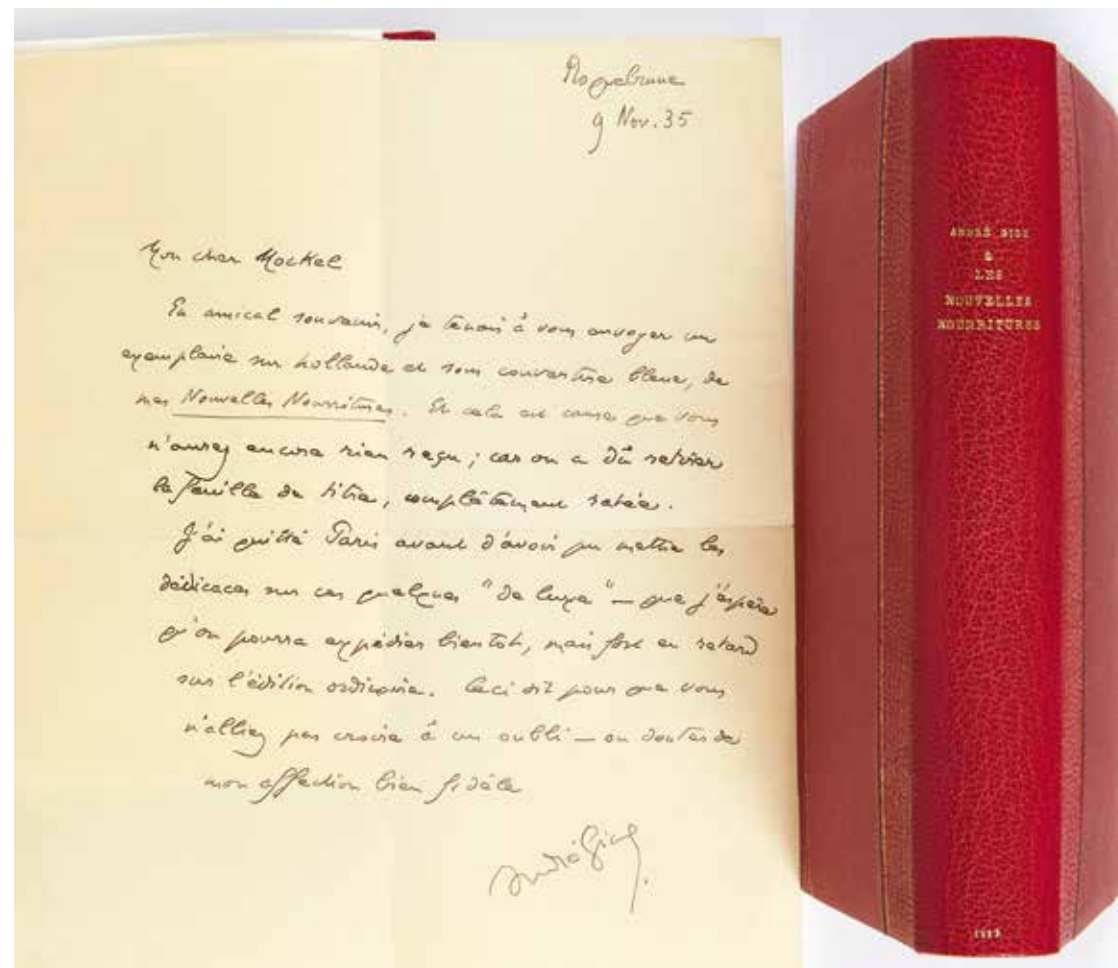 Roquebrune
9 Nov. 35
Mon cher Mockel
En amical souvenir, je tenais à vous envoyer un
exemplaire sur hollande et sous couverture bleue, de
mes Nouvelles Nourritures. Et cela est cause que vous
n'aurez encore rien reçu ; car on a dû retirer
la feuille de titre, complètement ratée.
J'ai quitté Paris avant d'avoir pu mettre les
dédicaces sur ces quelques "de luxe" — que j'espère
qu'on pourra expédier bientôt, mais fort en retard
sur l'édition ordinaire. Ceci dit pour que vous
n'alliez pas croire à un oubli — ou douter de
mon affection bien fidèle
André Gide.
ANDRÉ GIDE
LES
NOUVELLES
NOURRITURES